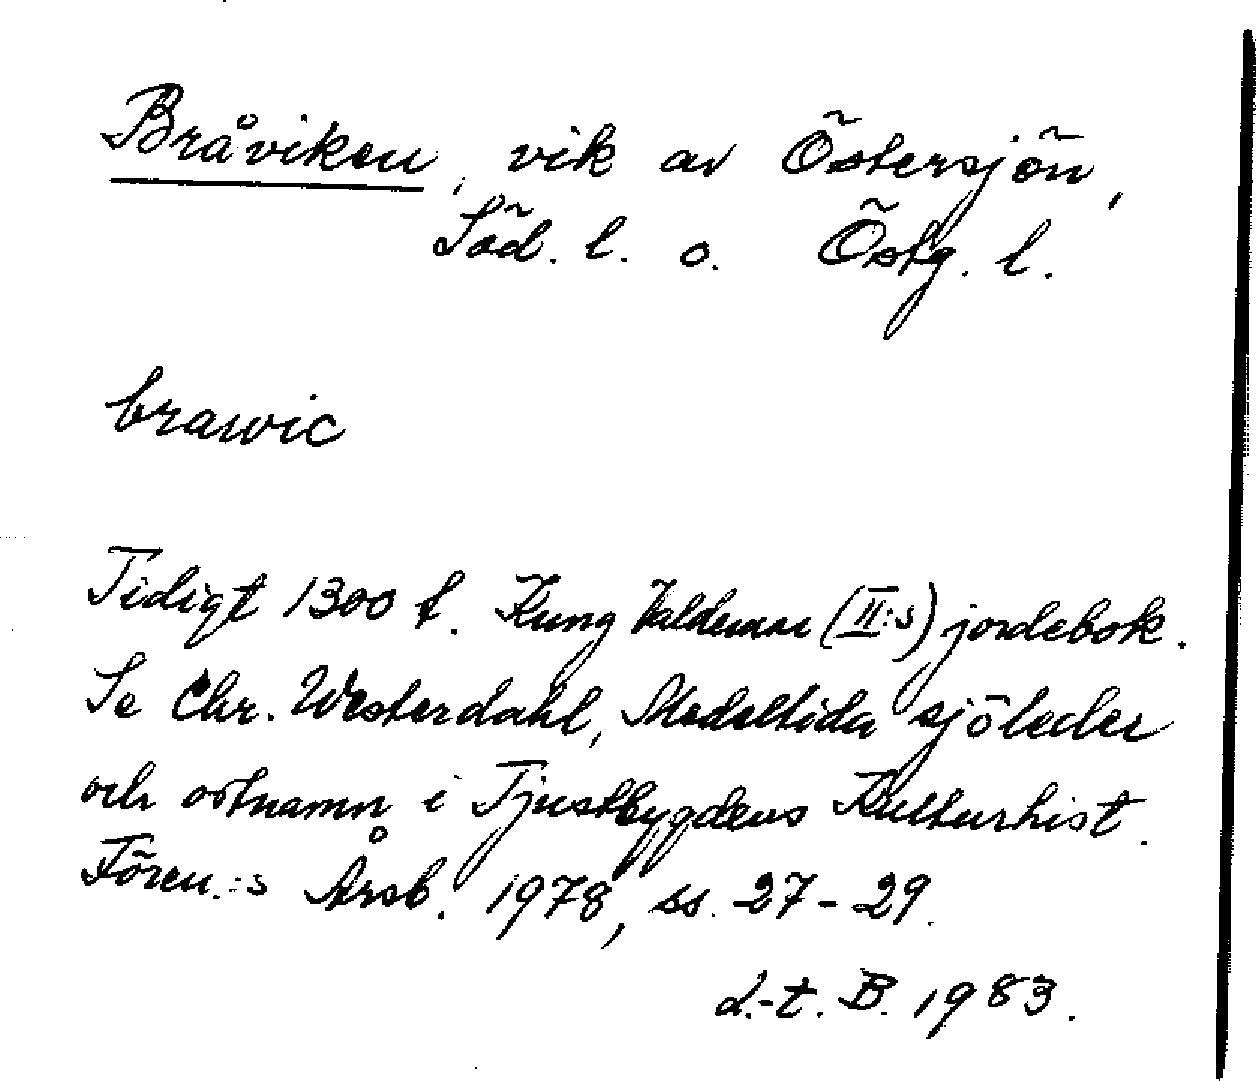 Bråviken, vik av Östersjön,
Söd. l. o. Östg. l.
brawic
Tidigt 1300 t. Kung Valdemar (II:s) jordebok.
Se Chr. Westerdahl, Medeltida sjöleder
och ortnamn i Tjustbygdens Kulturhist.
Fören.:s Årsb. 1978, ss. 27-29.
L.-t. B. 1983.